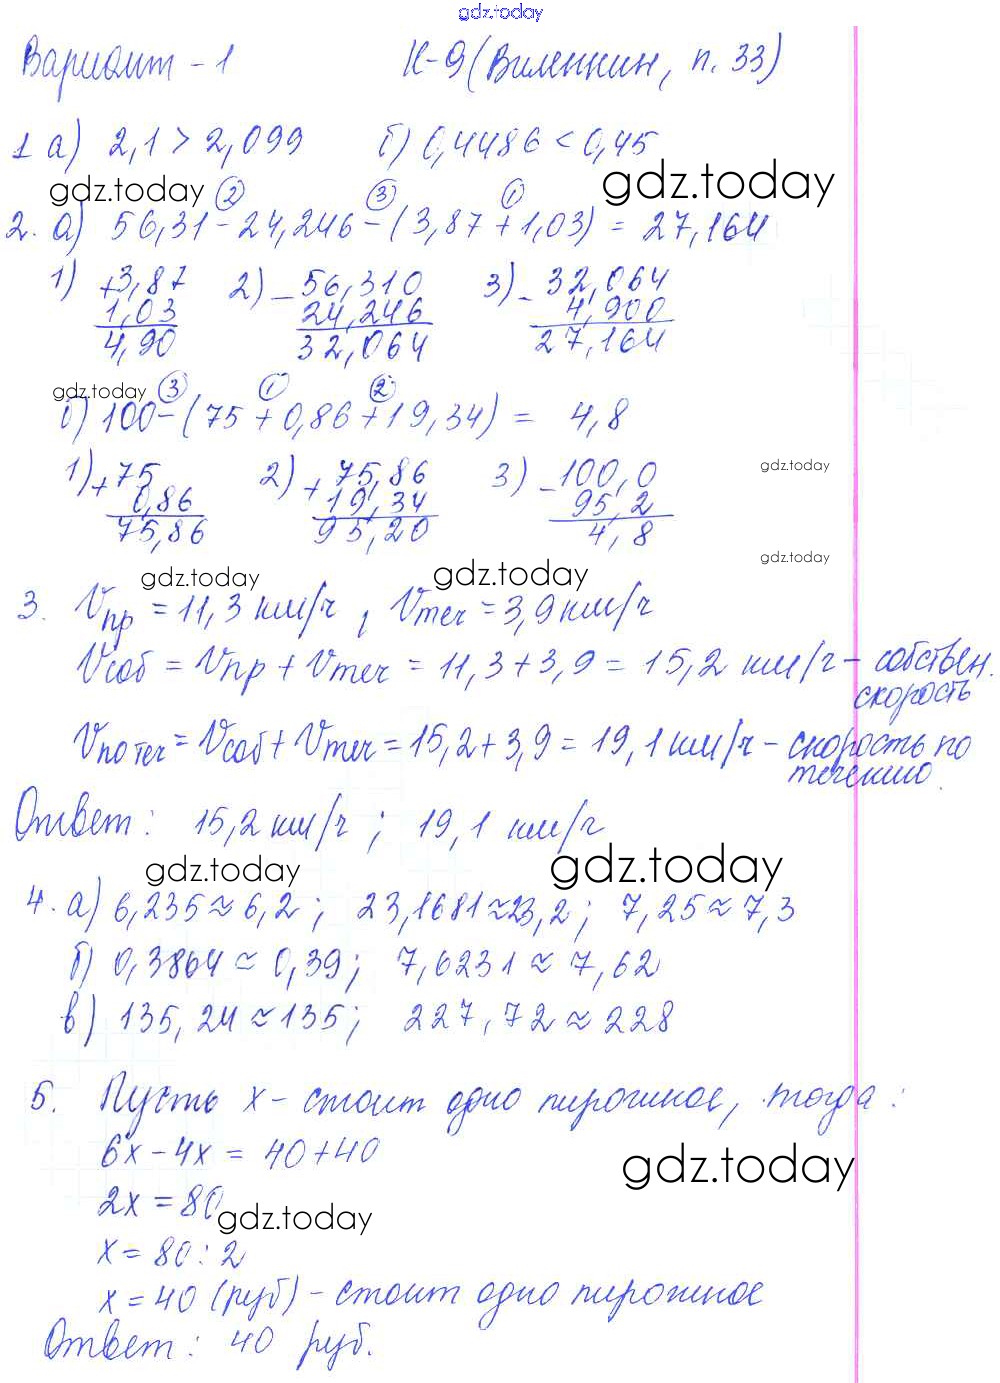 gdz.today
Вариант - 1 К-9 (Виленкин, п. 33)
1 а) 2,1 > 2,099 б) 0,4486 < 0,45
gdz.today gdz.today
② ③ ①
2. а) 56,31 - 24,246 - (3,87 + 1,03) = 27,164
1) +3,87 2) -56,310 3) -32,064
1,03 24,246 4,900
4,90 32,064 27,164
gdz.today ③ ① ②
б) 100 - (75 + 0,86 + 19,34) = 4,8
gdz.today
1) +75 2) +75,86 3) -100,0
0,86 19,34 95,2
75,86 95,20 4,8
gdz.today
gdz.today gdz.today
3. Vпр = 11,3 км/ч, Vтеч = 3,9 км/ч
Vсоб = Vпр + Vтеч = 11,3 + 3,9 = 15,2 км/ч - собствен.
скорость
Vпо теч = Vсоб + Vтеч = 15,2 + 3,9 = 19,1 км/ч - скорость по
течению.
Ответ: 15,2 км/ч; 19,1 км/ч
gdz.today gdz.today
4. а) 6,235 ≈ 6,2; 23,1681 ≈ 23,2; 7,25 ≈ 7,3
б) 0,3864 ≈ 0,39; 7,6231 ≈ 7,62
в) 135,24 ≈ 135; 227,72 ≈ 228
5. Пусть х - стоит одно пирожное, тогда:
6х - 4х = 40 + 40
gdz.today
2х = 80
gdz.today
х = 80 : 2
х = 40 (руб) - стоит одно пирожное
Ответ: 40 руб.